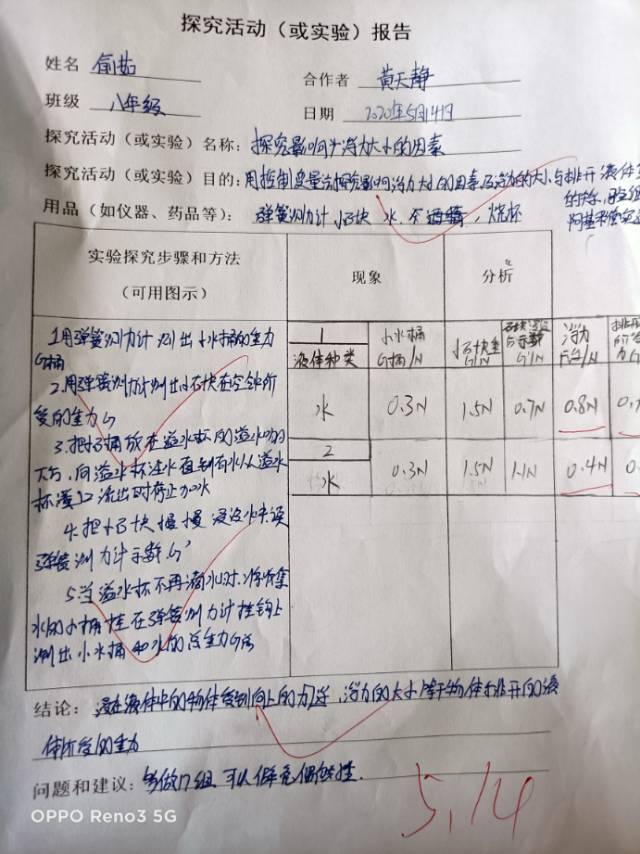 探究活动（或实验）报告
姓名 俞茹 合作者 黄天静
班级 八年级 日期 2020年5月14日
探究活动（或实验）名称：探究影响浮力大小的因素
探究活动（或实验）目的：用控制变量法探究影响浮力大小的因素及浮力的大小与排开液体
的关系，
用品（如仪器、药品等）：弹簧测力计，小石块 水，小桶，烧杯
实验探究步骤和方法
（可用图示）
现象
分析
1
液体种类
小水桶
G桶/N
小石块重
G/N
浮力
F浮/N
水 0.3N 1.5N 0.7N 0.8N
2
水 0.3N 1.5N 1.1N 0.4N
1.用弹簧测力计测出小水桶的重力
G桶
2.用弹簧测力计测出小石块在空气中所
受的重力G
3.把小桶放在溢水杯的溢水口的
下方，向溢水杯注水直到有水从溢水
杯溢口流出时停止加水
4.把小石块慢慢浸没水中读
弹簧测力计示数G'
5.当溢水杯不再滴水时，将收集
水的小桶挂在弹簧测力计挂钩上
测出小水桶和水的总重力G总
结论：浸在液体中的物体受到向上的力浮，浮力的大小等于物体排开的液
体所受的重力
问题和建议：多做几组，可以避免偶然性.
5,14
OPPO Reno3 5G